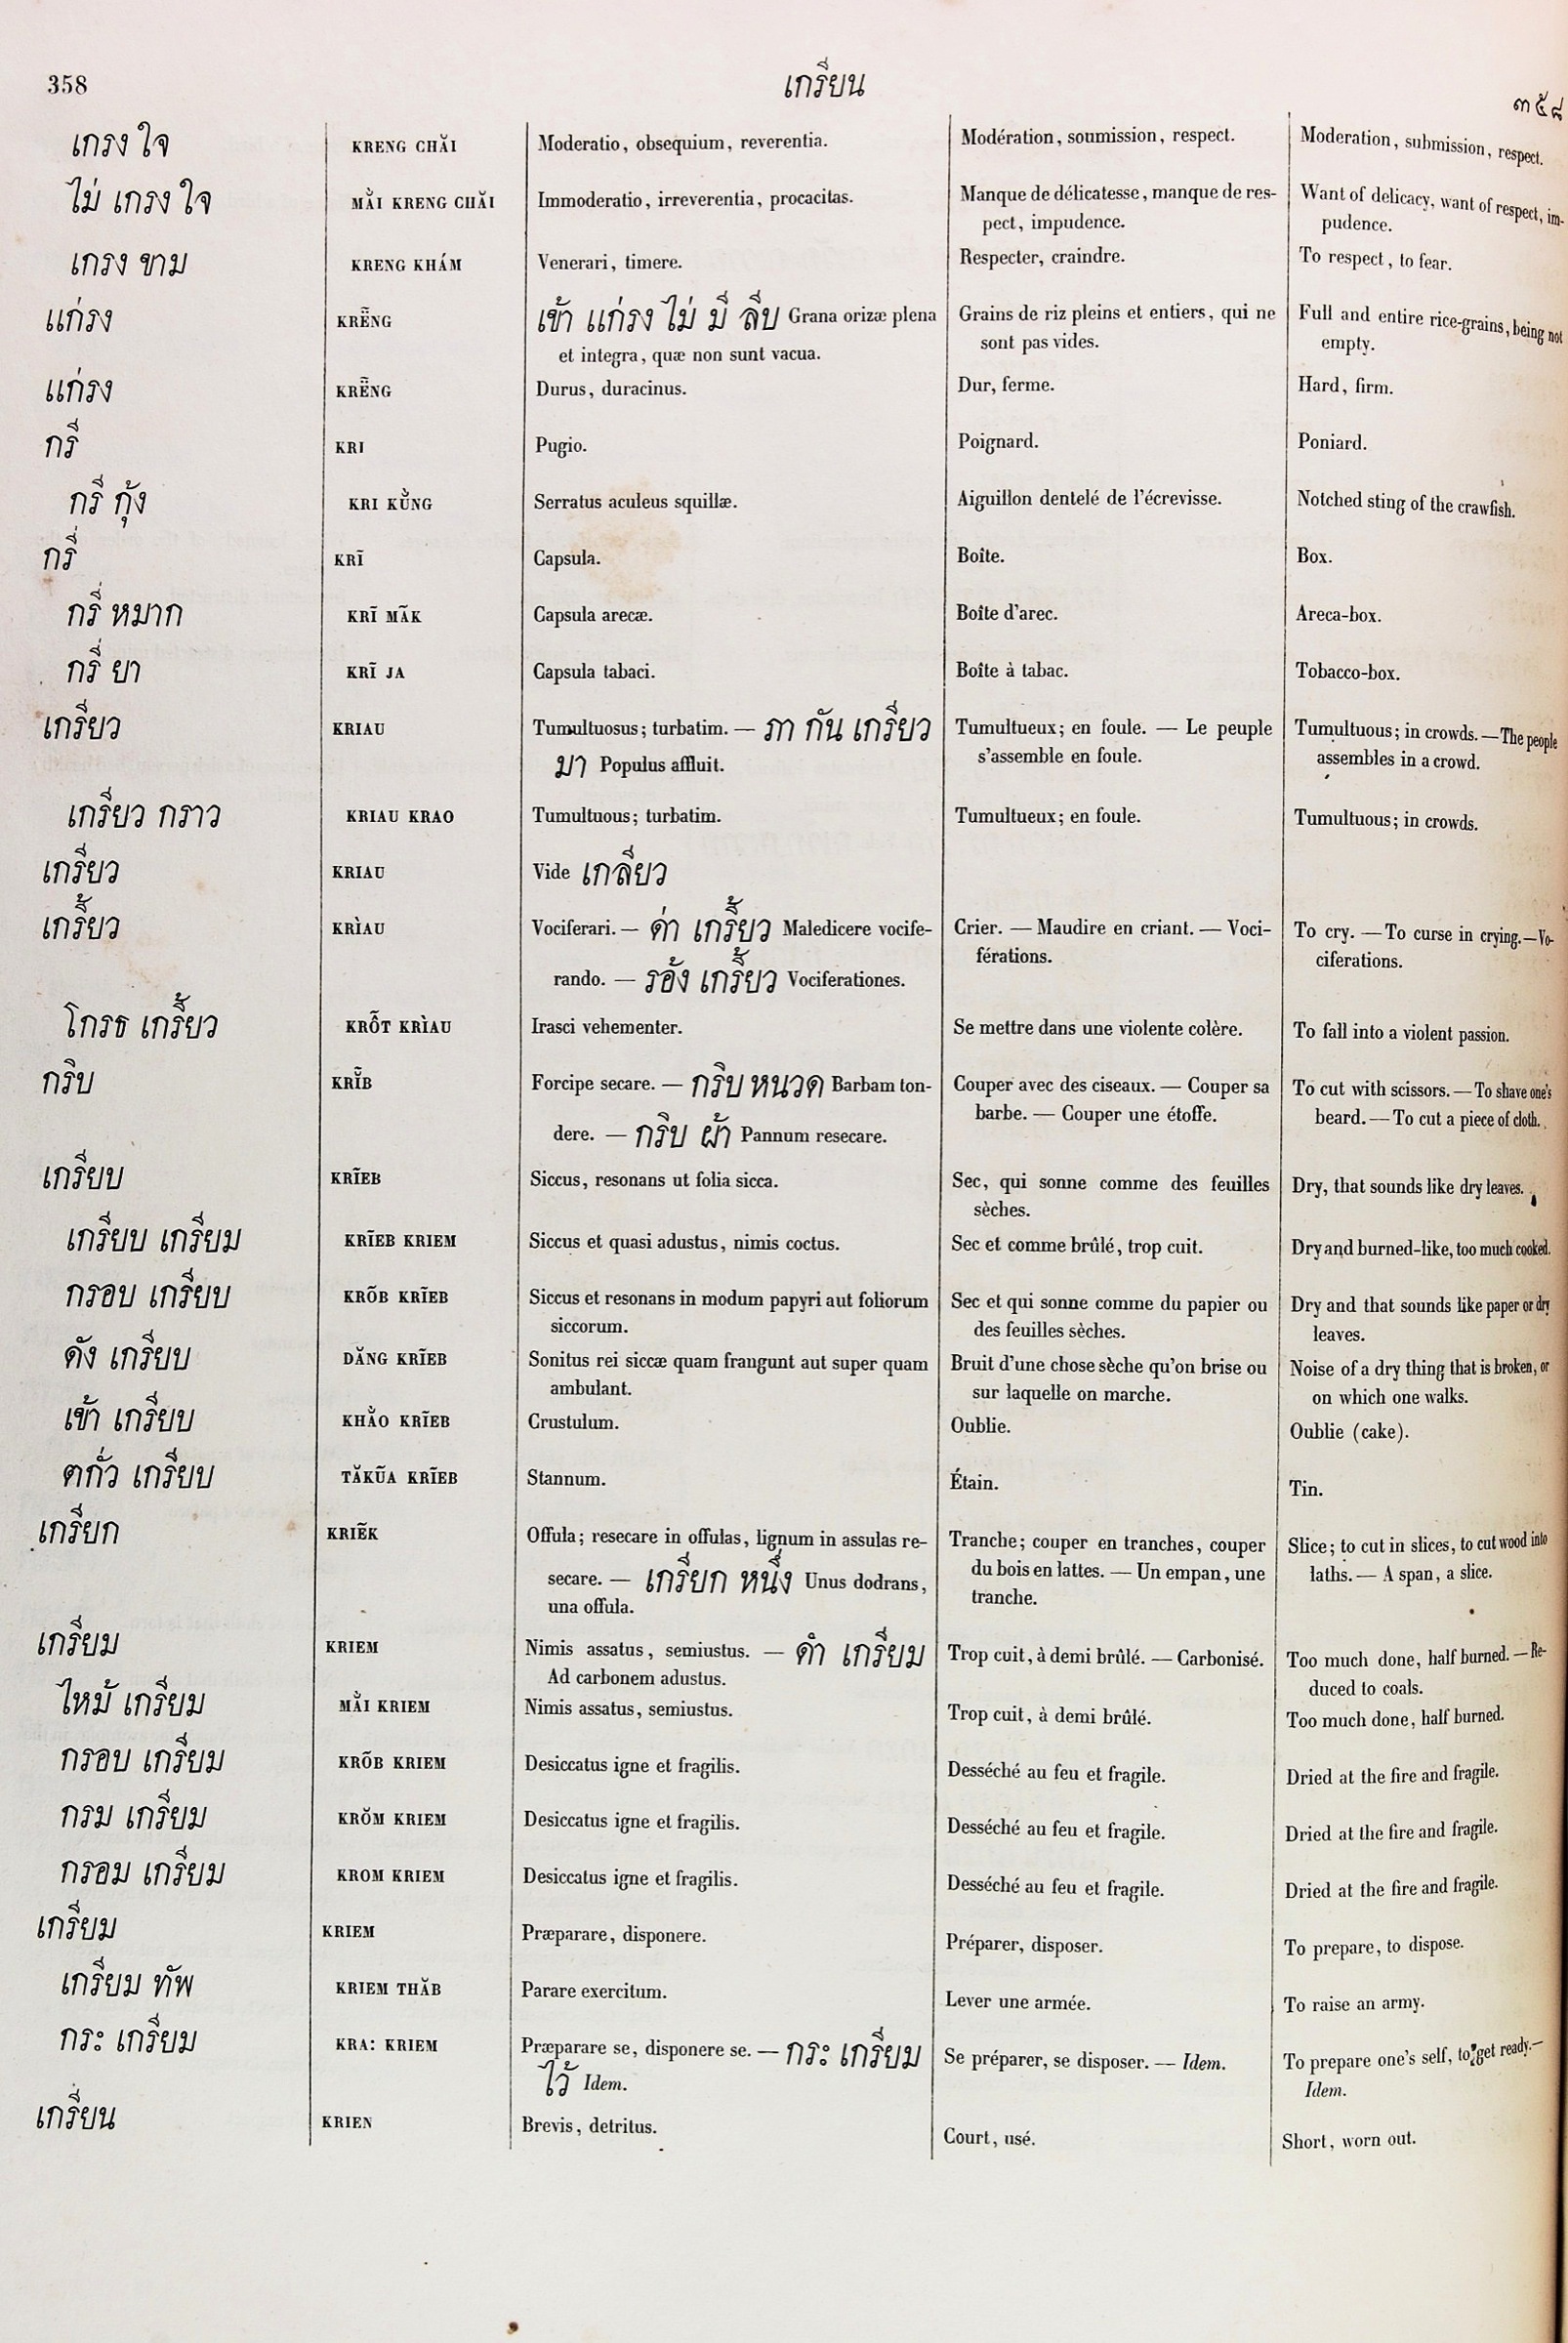 358 เกรียน ๓๕๘
เกรง ใจ KRENG CHĂI Moderatio, obsequium, reverentia. Modération, soumission, respect. Moderation, submission, respect.
ไม่ เกรง ใจ MẰI KRENG CHĂI Immoderatio, irreverentia, procacitas. Manque de délicatesse, manque de res- Want of delicacy, want of respect, im-
pect, impudence. pudence.
เกรง ขาม KRENG KHÁM Venerari, timere. Respecter, craindre. To respect, to fear.
แก่รง KRẼNG เข้า แก่รง ไม่ มี ลีบ Grana orizæ plena Grains de riz pleins et entiers, qui ne Full and entire rice-grains, being not
et integra, quæ non sunt vacua. sont pas vides. empty.
แก่รง KRẼNG Durus, duracinus. Dur, ferme. Hard, firm.
กรี KRI Pugio. Poignard. Poniard.
กรี กุ้ง KRI KŬ̀NG Serratus aculeus squillæ. Aiguillon dentelé de l'écrevisse. Notched sting of the crawfish.
กรี่ KRĨ Capsula. Boîte. Box.
กรี่ หมาก KRĨ MÃK Capsula arecæ. Boîte d'arec. Areca-box.
กรี่ ยา KRĨ JA Capsula tabaci. Boîte à tabac. Tobacco-box.
เกรียว KRIAU Tumultuosus; turbatim. — ภา กัน เกรียว Tumultueux; en foule. — Le peuple Tumultuous; in crowds. — The people
มา Populus affluit. s'assemble en foule. assembles in a crowd.
เกรียว กราว KRIAU KRAO Tumultuous; turbatim. Tumultueux; en foule. Tumultuous; in crowds.
เกรียว KRIAU Vide เกลียว
เกรี้ยว KRÌAU Vociferari. — ด่า เกรี้ยว Maledicere vocife- Crier. — Maudire en criant. — Voci- To cry. — To curse in crying. — Vo-
rando. — รอ้ง เกรี้ยว Vociferationes. férations. ciferations.
โกรธ เกรี้ยว KRỖT KRÌAU Irasci vehementer. Se mettre dans une violente colère. To fall into a violent passion.
กริบ KRĬ̃B Forcipe secare. — กริบ หนวด Barbam ton- Couper avec des ciseaux. — Couper sa To cut with scissors. — To shave one's
dere. — กริบ ผ้า Pannum resecare. barbe. — Couper une étoffe. beard. — To cut a piece of cloth.
เกรียบ KRĨEB Siccus, resonans ut folia sicca. Sec, qui sonne comme des feuilles Dry, that sounds like dry leaves.
sèches.
เกรียบ เกรียม KRĨEB KRIEM Siccus et quasi adustus, nimis coctus. Sec et comme brûlé, trop cuit. Dry and burned-like, too much cooked.
กรอบ เกรียบ KRÕB KRĨEB Siccus et resonans in modum papyri aut foliorum Sec et qui sonne comme du papier ou Dry and that sounds like paper or dry
siccorum. des feuilles sèches. leaves.
ดัง เกรียบ DĂNG KRĨEB Sonitus rei siccæ quam frangunt aut super quam Bruit d'une chose sèche qu'on brise ou Noise of a dry thing that is broken, or
ambulant. sur laquelle on marche. on which one walks.
เข้า เกรียบ KHẰO KRĨEB Crustulum. Oublie. Oublie (cake).
ตกั่ว เกรียบ TĂKŨA KRĨEB Stannum. Étain. Tin.
เกรียก KRIẼK Offula; resecare in offulas, lignum in assulas re- Tranche; couper en tranches, couper Slice; to cut in slices, to cut wood into
secare. — เกรียก หนึ่ง Unus dodrans, du bois en lattes. — Un empan, une laths. — A span, a slice.
una offula. tranche.
เกรียม KRIEM Nimis assatus, semiustus. — ดำ เกรียม Trop cuit, à demi brûlé. — Carbonisé. Too much done, half burned. — Re-
Ad carbonem adustus. duced to coals.
ไหม้ เกรียม MẰI KRIEM Nimis assatus, semiustus. Trop cuit, à demi brûlé. Too much done, half burned.
กรอบ เกรียม KRÕB KRIEM Desiccatus igne et fragilis. Desséché au feu et fragile. Dried at the fire and fragile.
กรม เกรียม KRŎM KRIEM Desiccatus igne et fragilis. Desséché au feu et fragile. Dried at the fire and fragile.
กรอม เกรียม KROM KRIEM Desiccatus igne et fragilis. Desséché au feu et fragile. Dried at the fire and fragile.
เกรียม KRIEM Præparare, disponere. Préparer, disposer. To prepare, to dispose.
เกรียม ทัพ KRIEM THĂB Parare exercitum. Lever une armée. To raise an army.
กระ เกรียม KRA: KRIEM Præparare se, disponere se. — กระ เกรียม Se préparer, se disposer. — Idem. To prepare one's self, to get ready. —
ไว้ Idem. Idem.
เกรียน KRIEN Brevis, detritus. Court, usé. Short, worn out.